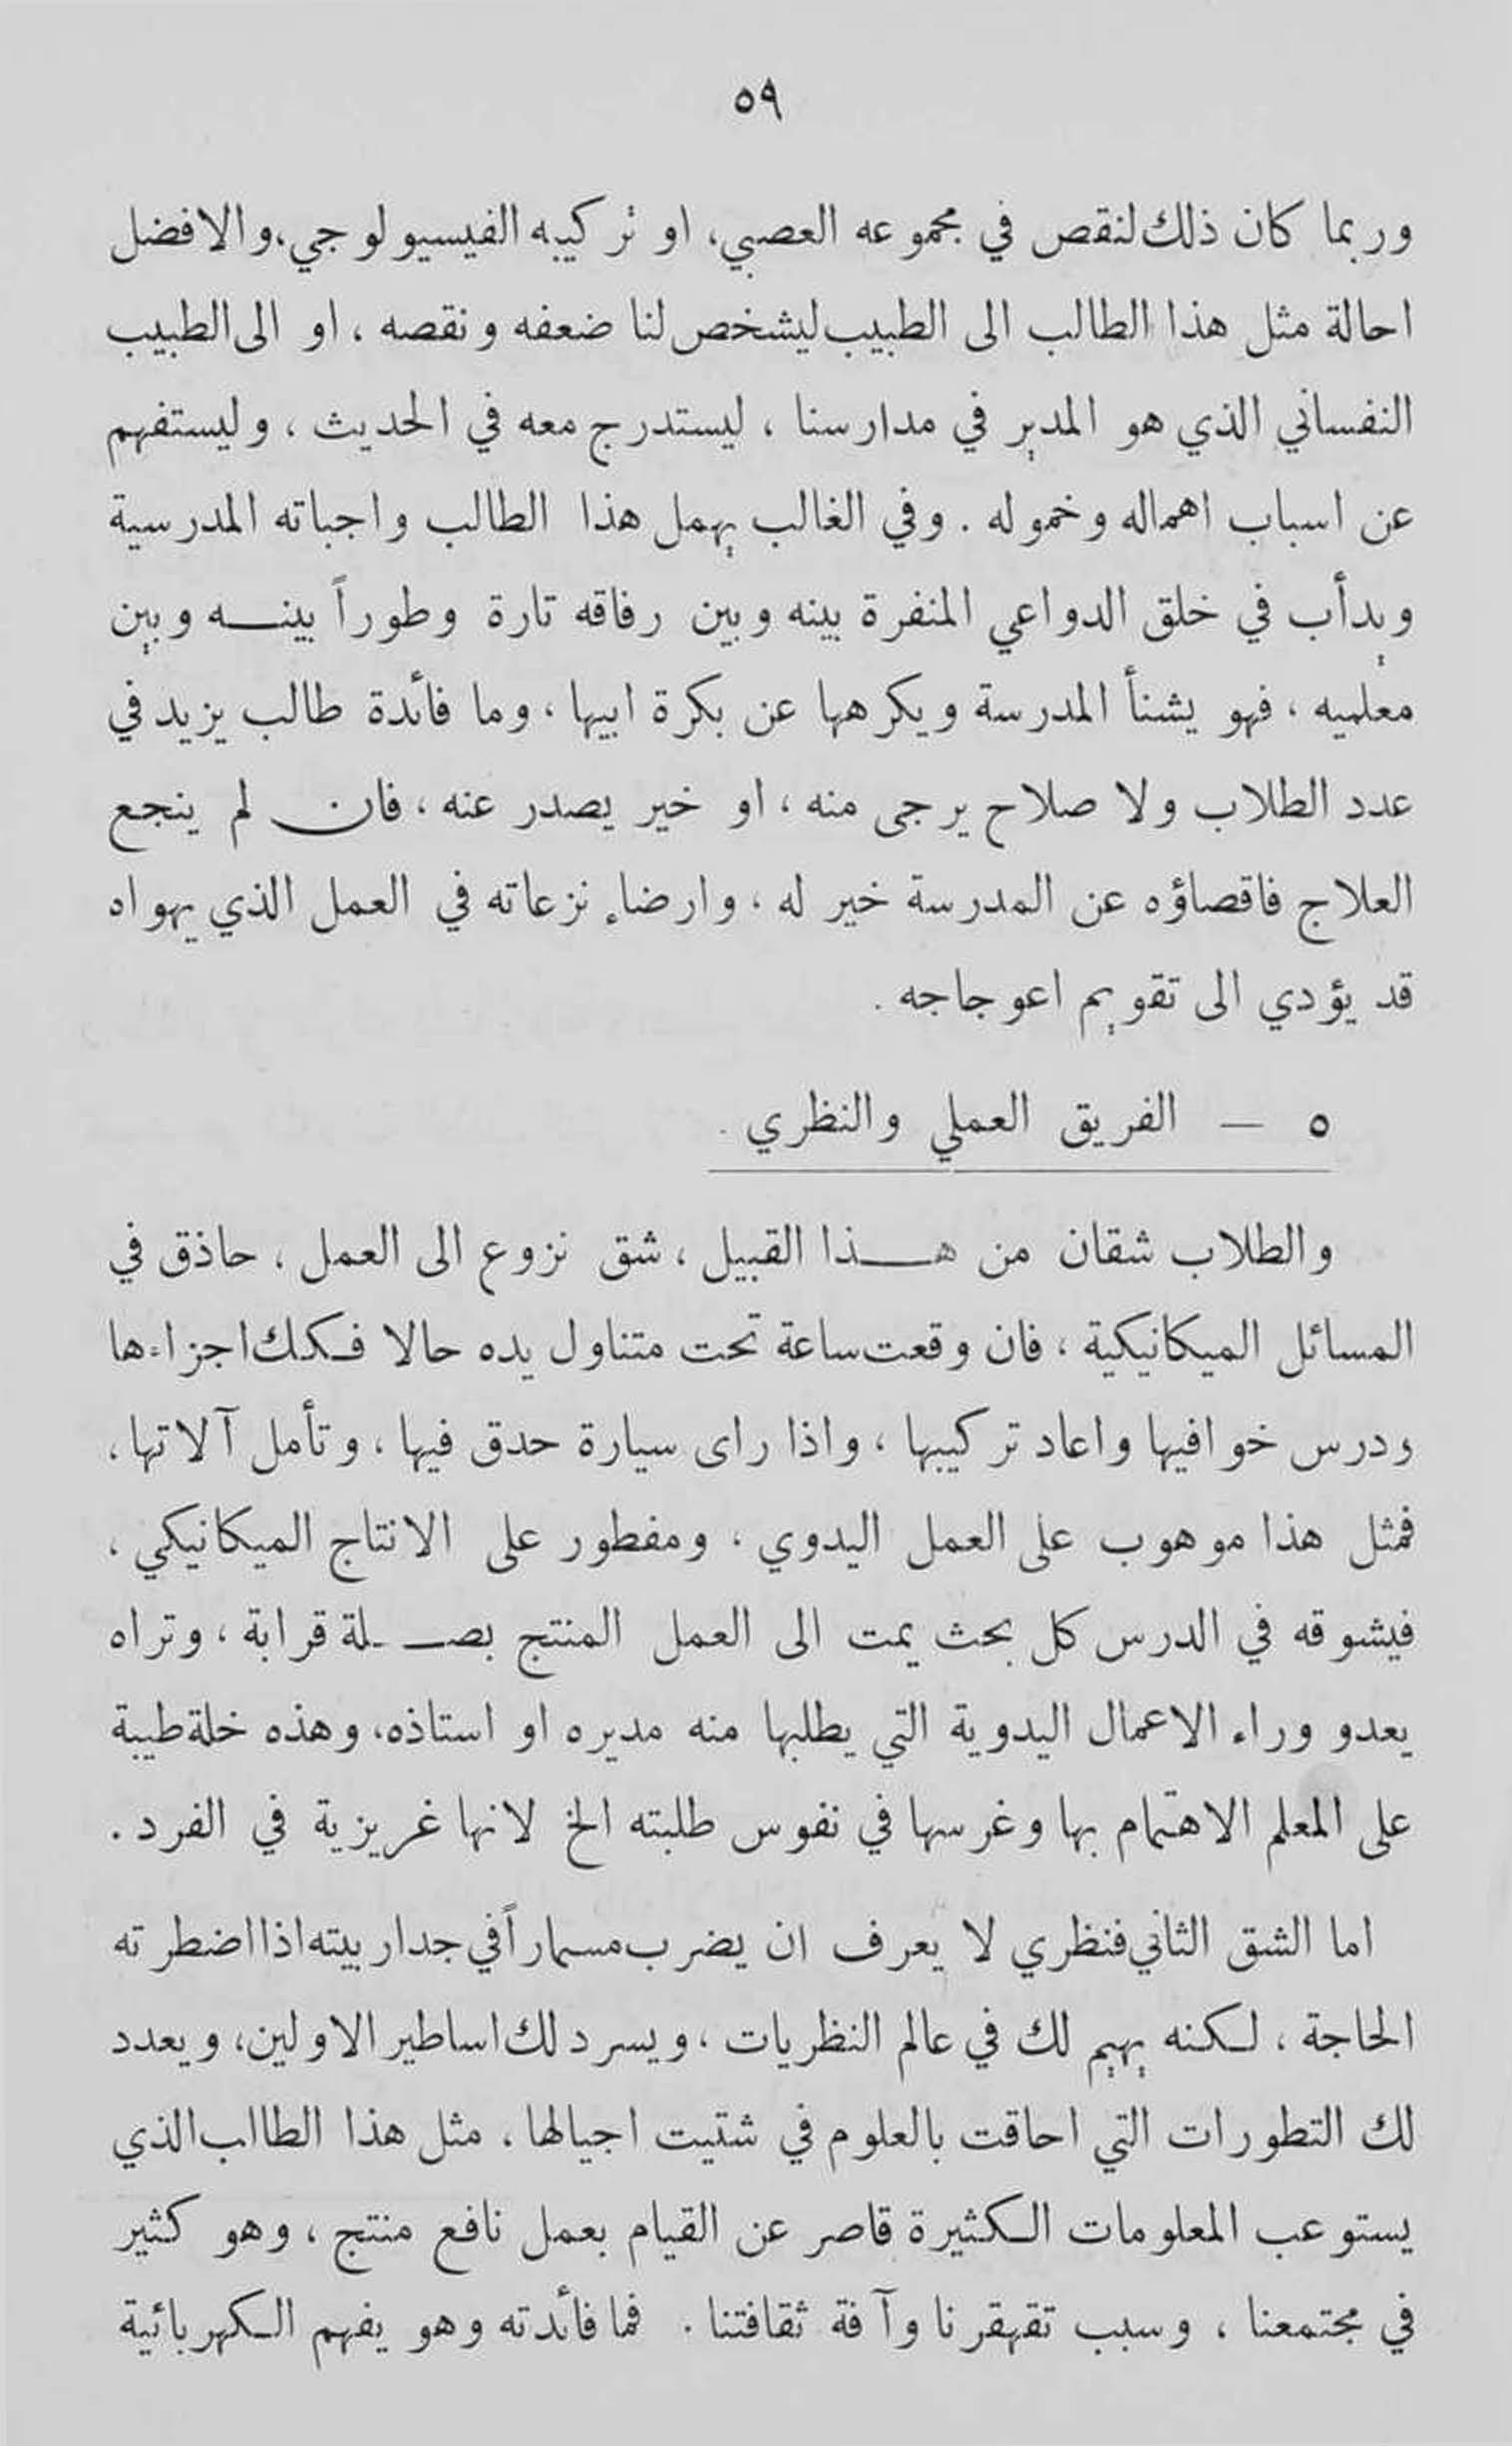 ٥٩
وربما كان ذلك لنقص في مجموعه العصبي، او تركيبه الفيسيولوجي، والافضل
احالة مثل هذا الطالب الى الطبيب ليشخص لنا ضعفه ونقصه ، او الى الطبيب
النفساني الذي هو المدير في مدارسنا ، ليستدرج معه في الحديث ، وليستفهم
عن اسباب اهماله وخموله . وفي الغالب يهمل هذا الطالب واجباته المدرسية
ويدأب في خلق الدواعي المنفرة بينه وبين رفاقه تارة وطوراً بينه وبين
معلميه ، فهو يشنأ المدرسة ويكرهها عن بكرة ابيها ، وما فائدة طالب يزيد في
عدد الطلاب ولا صلاح يرجى منه ، او خير يصدر عنه ، فان لم ينجع
العلاج فاقصاؤه عن المدرسة خير له ، وارضاء نزعاته في العمل الذي يهواه
قد يؤدي الى تقويم اعوجاجه .
٥ — الفريق العملي والنظري .
والطلاب شقان من هذا القبيل ، شق نزوع الى العمل ، حاذق في
المسائل الميكانيكية ، فان وقعت ساعة تحت متناول يده حالا فكك اجزاءها
ودرس خوافيها واعاد تركيبها ، واذا راى سيارة حدق فيها ، وتأمل آلاتها ،
فمثل هذا موهوب على العمل اليدوي ، ومفطور على الانتاج الميكانيكي ،
فيشوقه في الدرس كل بحث يمت الى العمل المنتج بصلة قرابة ، وتراه
يعدو وراء الاعمال اليدوية التي يطلبها منه مديره او استاذه، وهذه خلة طيبة
على المعلم الاهتمام بها وغرسها في نفوس طلبته الخ لانها غريزية في الفرد .
اما الشق الثاني فنظري لا يعرف ان يضرب مسماراً في جدار بيته اذا اضطرته
الحاجة ، لكنه يهيم لك في عالم النظريات ، ويسرد لك اساطير الاولين، ويعدد
لك التطورات التي احاقت بالعلوم في شتيت اجيالها ، مثل هذا الطالب الذي
يستوعب المعلومات الكثيرة قاصر عن القيام بعمل نافع منتج ، وهو كثير
في مجتمعنا ، وسبب تقهقرنا وآفة ثقافتنا . فما فائدته وهو يفهم الكهربائية